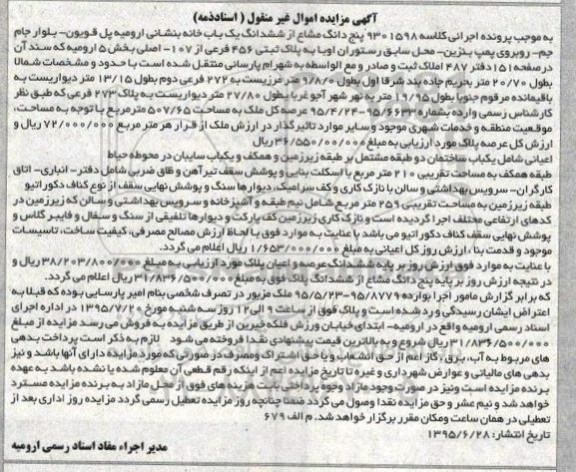 آگهی مزایده اموال غیر منقول ( اسنادذمه)
به موجب پرونده اجرائی کلاسه ۹۳۰۱۵۹۸ پنج دانگ مشاع از ششدانگ یک باب خانه بنشانی ارومیه پل قویون- بلوار جام
جم- روبروی پمپ بنزین- محل سابق رستوران اویا به پلاک ثبتی ۴۵۶ فرعی از ۱۰۷- اصلی بخش ۵ ارومیه که سند آن
در صفحه ۱۵۱ دفتر ۴۸۷ املاک ثبت و صادر و مع الواسطه به شهرام پارسانی منتقل شده است با حدود و مشخصات شمالا
بطول ۲۰/۷۰ متر بحریم جاده بند شرقا اول بطول ۹/۸۰ متر مرزیست به ۲۷۲ فرعی دوم بطول ۱۳/۱۵ متر دیواریست به
باقیمانده مرقوم جنوبا بطول ۱۹/۹۵ متر به نهر شهر آجو غربا بطول ۲۷/۸۰ متر دیواریست به پلاک ۲۷۳ فرعی که طبق نظر
کارشناس رسمی وارده بشماره ۹۵/۶۶۳۳-۹۵/۴/۲۴ عرصه کل ملک به مساحت ۵۰۷/۶۵ مترمربع با توجه به مساحت،
موقعیت منطقه و خدمات شهری موجود و سایر موارد تاثیرگذار در ارزش ملک از قرار هر متر مربع ۷۲/۰۰۰/۰۰۰ ریال و
ارزش کل عرصه پلاک مورد ارزیابی به مبلغ ۳۶/۵۵۰/۰۰۰/۰۰۰ ریال
اعیانی شامل یکباب ساختمان دو طبقه مشتمل بر طبقه زیرزمین و همکف و یکباب سایبان در محوطه حیاط
طبقه همکف به مساحت تقریبی ۲۱۰ متر مربع با اسکلت بنایی و پوشش سقف تیرآهن و طاق ضربی شامل دفتر- انباری- اتاق
کارگران- سرویس بهداشتی و سالن با نازک کاری و کف سرامیک، دیوارها سنگ و پوشش نهایی سقف از نوع کناف دکوراتیو
طبقه زیرزمین به مساحت تقریبی ۲۵۹ متر مربع شامل نیم طبقه و آشپزخانه و سرویس بهداشتی و سالن که زیرزمین در
کدهای ارتفاعی مختلف اجرا گردیده است و نازک کاری زیرزمین کف پارکت و دیوارها تلفیقی از سنگ و سفال و فایبر گلاس و
پوشش نهایی سقف کناف دکوراتیو می باشد با عنایت به موارد فوق با لحاظ ارزش مصالح مصرفی، کیفیت ساخت، تاسیسات
موجود و قدمت بنا، ارزش روز کل اعیانی به مبلغ ۱/۶۵۳/۰۰۰/۰۰۰ ریال اعلام می گردد.
با عنایت به موارد فوق ارزش روز بر پایه ششدانگ عرصه و اعیان پلاک مورد ارزیابی به مبلغ ۳۸/۲۰۳/۸۰۰/۰۰۰ ریال و
در نتیجه ارزش روز بر پایه پنج دانگ مشاع از ششدانگ پلاک فوق به مبلغ ۳۱/۸۳۶/۵۰۰/۰۰۰ ریال اعلام می گردد.
که برابر گزارش مامور اجرا بوارده ۹۵/۸۷۷۹-۹۵/۵/۲۳ ملک مزبور در تصرف شخصی بنام امیر پارسایی بوده که قبلا به
اعتراض ایشان رسیدگی و رد شده است و پلاک فوق از ساعت ۹ الی ۱۲ روز سه شنبه مورخ ۱۳۹۵/۷/۲۰ در اداره اجرای
اسناد رسمی ارومیه واقع در ارومیه- ابتدای خیابان ورزش فلکه خیرین از طریق مزایده به فروش می رسد مزایده از مبلغ
۳۱/۸۳۶/۵۰۰/۰۰۰ ریال شروع و به بالاترین قیمت پیشنهادی نقدا فروخته می شود لازم به ذکر است پرداخت بدهی
های مربوط به آب، برق، گاز اعم از حق انشعاب و یا حق اشتراک و مصرف در صورتی که مورد مزایده دارای آنها باشد و نیز
بدهی های مالیاتی و عوارض شهرداری و غیره تا تاریخ مزایده اعم از اینکه رقم قطعی آن معلوم شده یا نشده باشد به عهده
برنده مزایده است و نیز در صورت وجود مازاد وجوه پرداختی بابت هزینه های فوق از محل مازاد به برنده مزایده مسترد
خواهد شد و نیم عشر و حق مزایده نقدا وصول می گردد ضمنا چنانچه روز مزایده تعطیل رسمی گردد مزایده روز اداری بعد از
تعطیلی در همان ساعت و مکان مقرر برگزار خواهد شد. م الف ۶۷۹
تاریخ انتشار: ۱۳۹۵/۶/۲۸
مدیر اجراء مفاد اسناد رسمی ارومیه